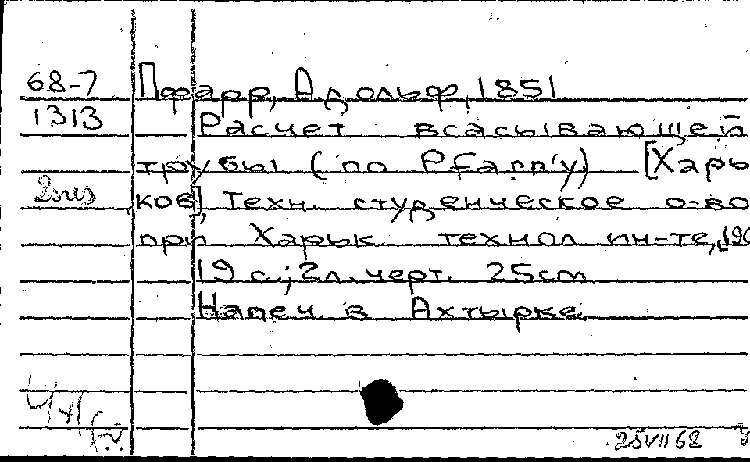 68-7 Пфарр, Адольф, 1851
1313 Расчет всасывающей
трубы (по Pfarr'у) [Харь
2 экз ков], Техн. студенческое о-во
при Харьк. технол ин-те, [190
19 с.; 2 л. черт. 25 cm
Напеч в Ахтырке
25 VII 62